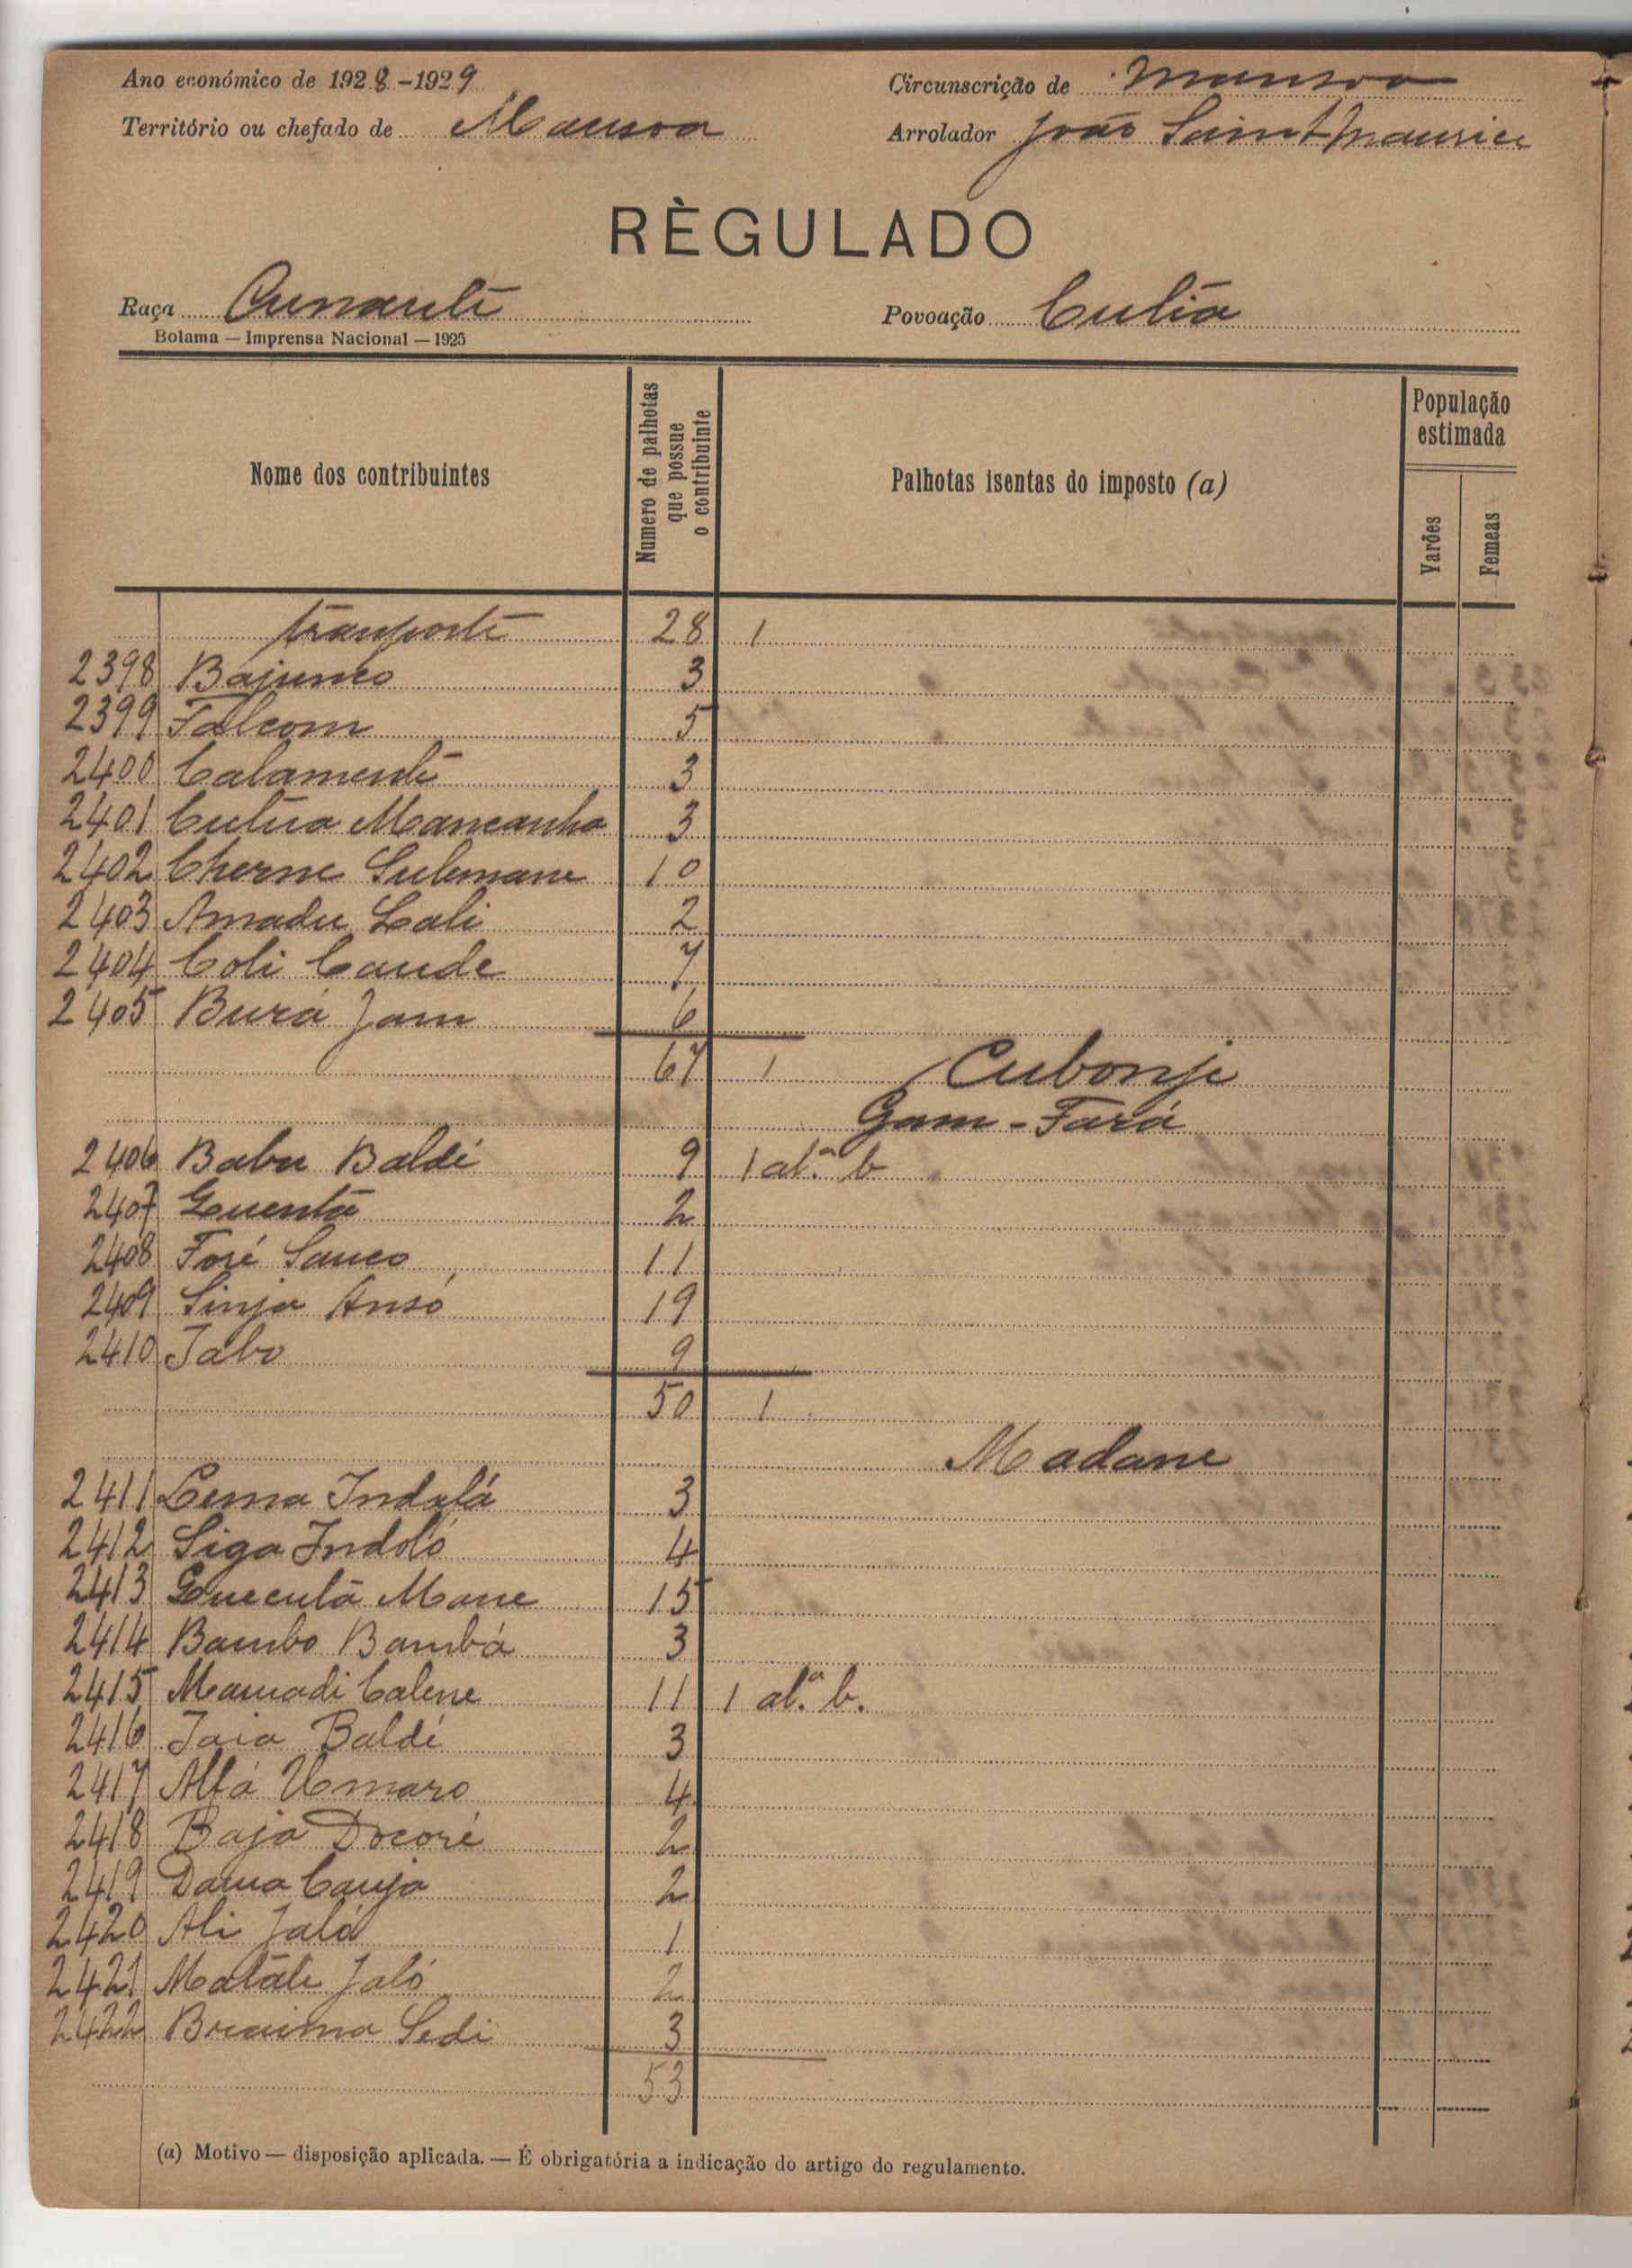 Ano económico de 1928-1929 Circunscrição de Mansoa
Território ou chefado de Mansoa Arrolador João Saint Maurice
RÈGULADO
Raça Povoação Cutia
Bolama — Imprensa Nacional — 1925
Nome dos contribuintes
Numero de palhotas que possue o contribuinte
Palhotas isentas do imposto (a)
População estimada
Varões
Femeas
transporte 28 1
2398 Bajunco 3
2399 Falcom 5
2400 Calamenté 3
2401 Cutúa Mancanha 3
2402 Cherne Sulemane 10
2403 Amadu Lali 2
2404 Coli Caude 7
2405 Burá Jam 6
67 1 Cubonje
Gam-Fará
2406 Babu Baldé 9 1 al.ª b
2407 Quentá 2
2408 Foré Sanco 11
2409 Sinja Ansó 19
2410 Jabo 9
50 1
Madane
2411 Lema Indalá 3
2412 Siga Indoló 4
2413 Quecutá Mane 15
2414 Bambo Bambá 3
2415 Mamadi Calene 11 1 al.ª b.
2416 Jaia Baldé 3
2417 Alfá Umaro 4
2418 Baja Docoré 2
2419 Dama Canja 2
2420 Ali Jaló 1
2421 Matále Jaló 2
2422 Braima Sedi 3
53
(a) Motivo — disposição aplicada. — É obrigatória a indicação do artigo do regulamento.